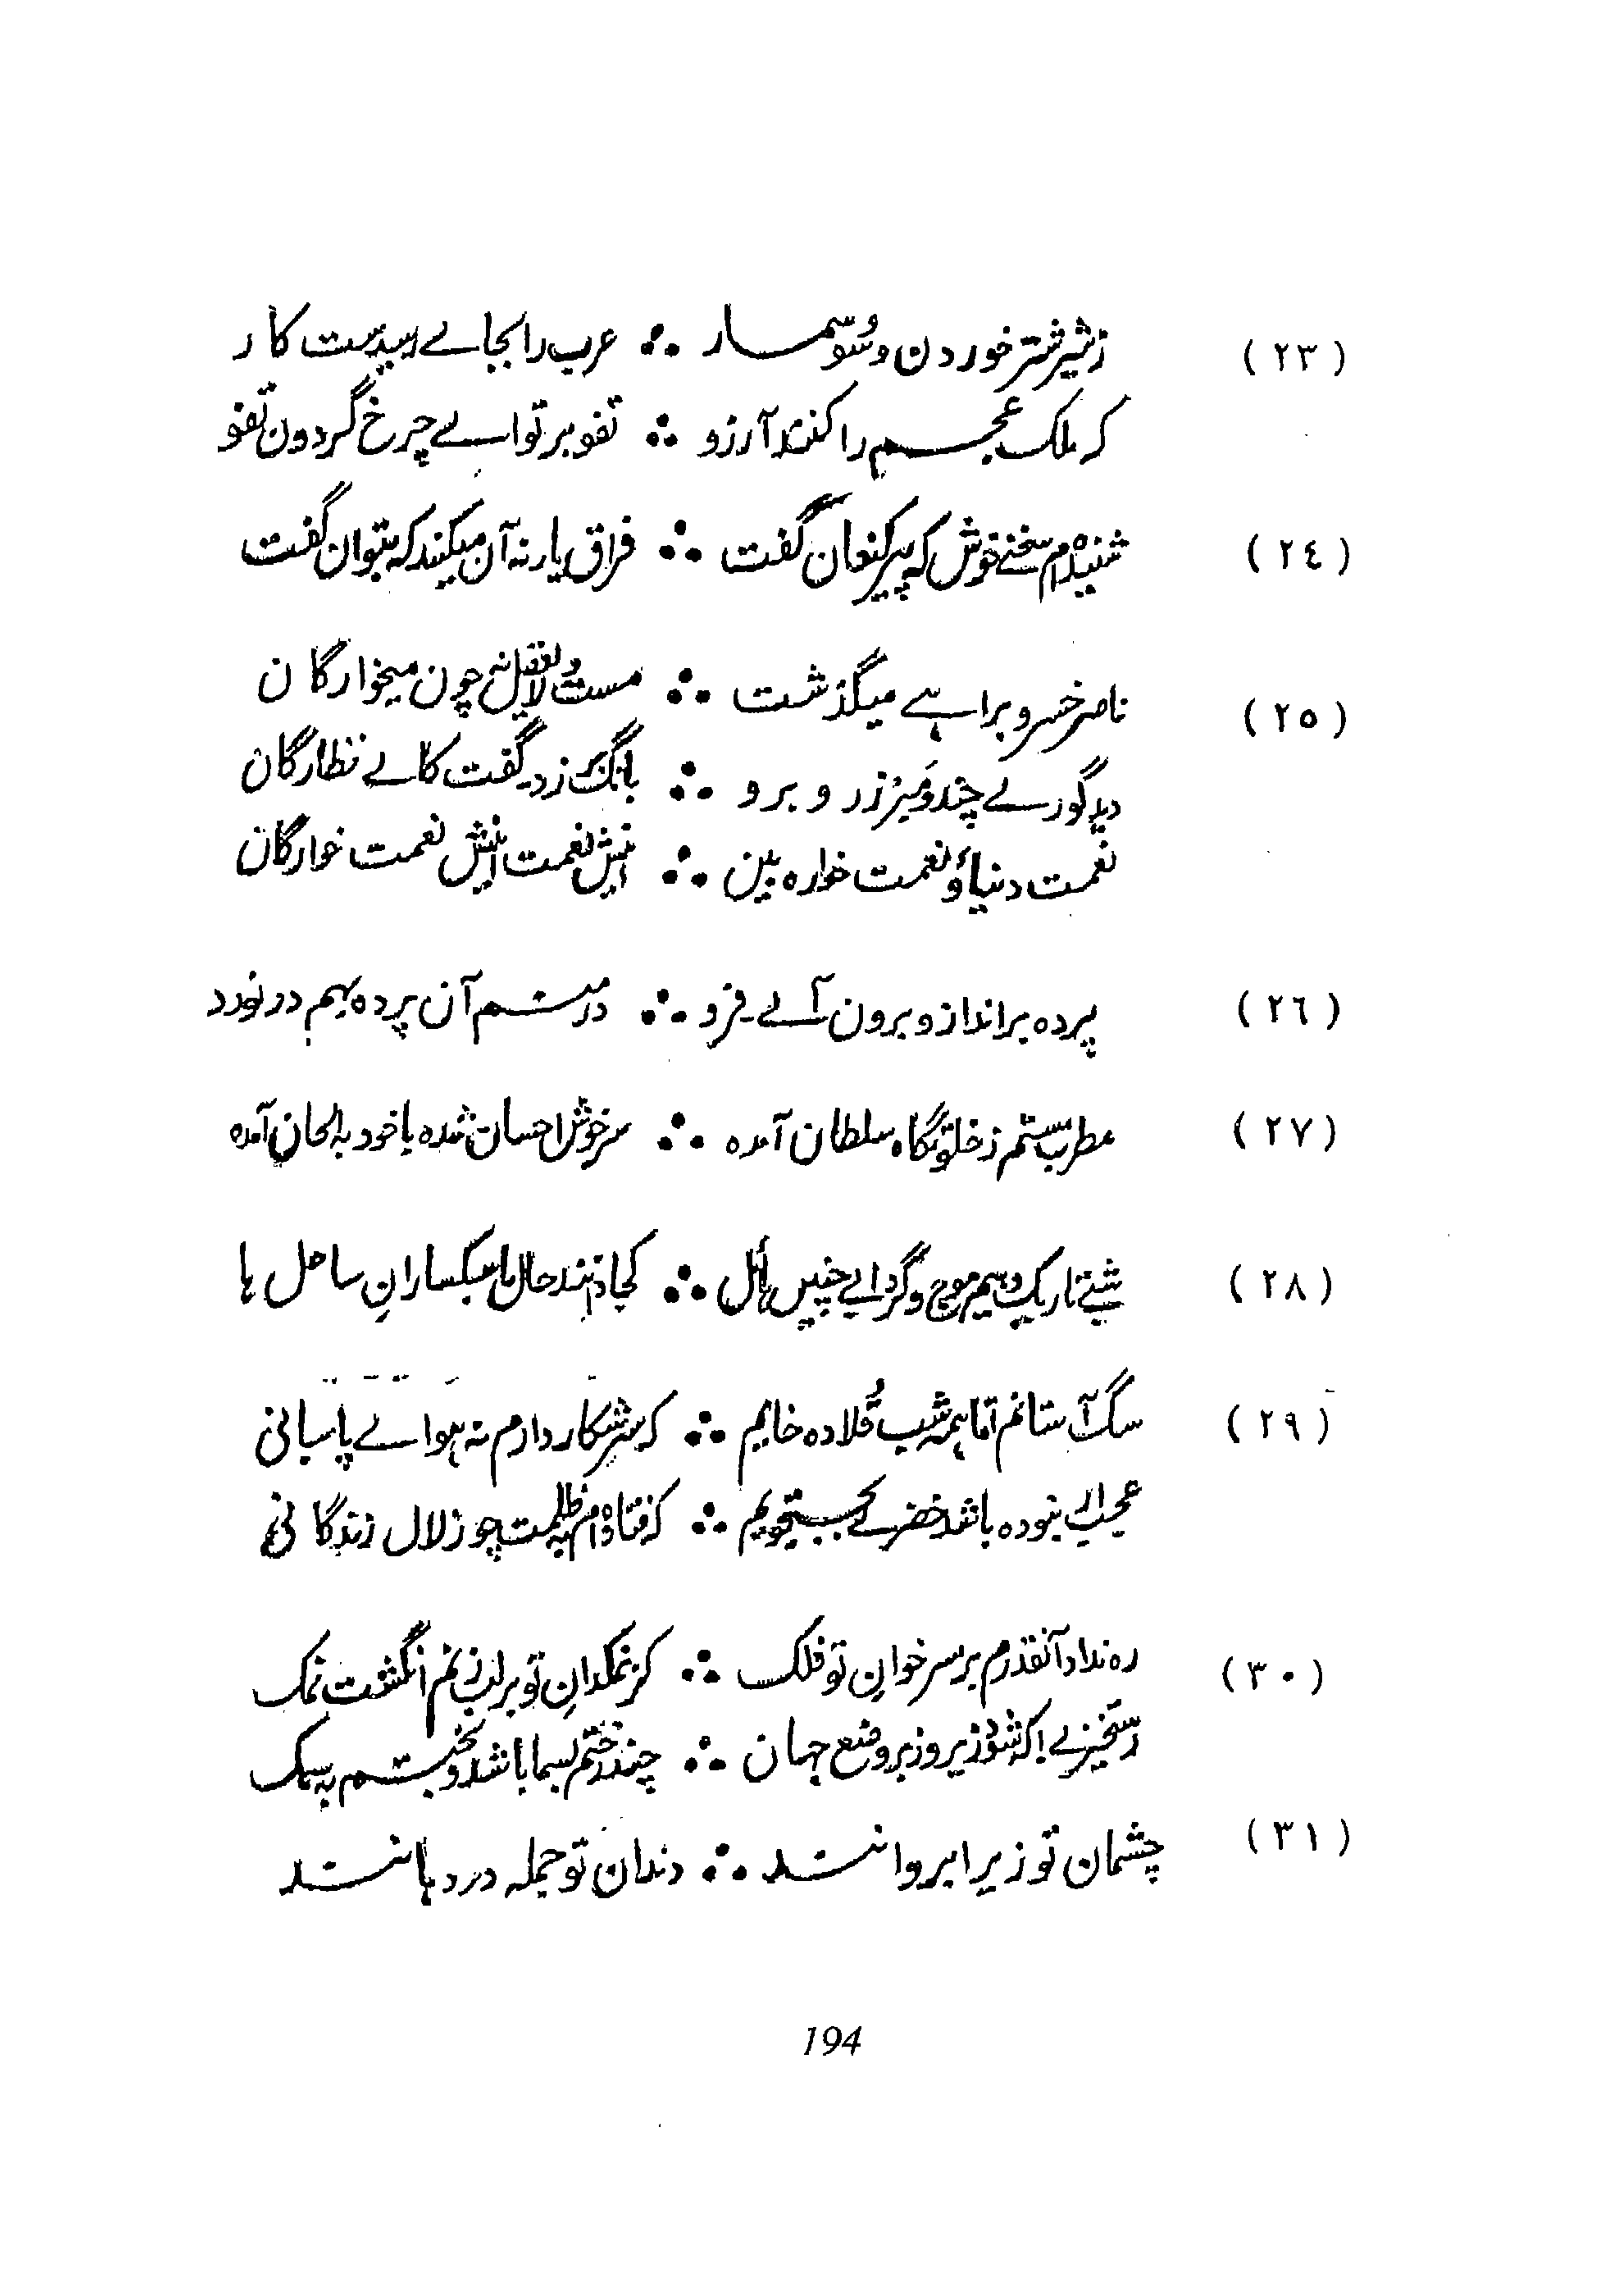 (۲۳) زشیر شتر خوردن و سوسمار ∴ عرب را بجاے رسیدست کار
که ملک عجم را کنند آرزو ∴ تفو بر تو اے چرخ گردون تفو
(۲٤) شنیده‌ام سخنے خوش که پیر کنعان گفت ∴ فراق یار نه آن میکند که بتوان گفت
(۲٥) ناصر خسرو براہے میگذشت ∴ مست و لایعقل نه چون میخوارگان
دید گورے چند و مبرز رو برو ∴ بانگ بر زد گفت کاے نظارگان
نعمت دنیا و نعمت خواره بین ∴ اینش نعمت اینش نعمت خوارگان
(۲٦) پرده برانداز و برون آے فرد ∴ در منم آن پرده بهم در نورد
(۲۷) مطرب مستم ز خلوتگاه سلطان آمده ∴ سرخوش احسان شده با خود به الحان آمده
(۲۸) شبے تاریک و بیم موج و گردابے چنیں ہائل ∴ کجا دانند حال ما سبکسارانِ ساحل ہا
(۲۹) سگ آستانم اما ہمه شب قُلاده خایم ∴ که سر شکار دارم نه ہواے پاسبانی
عجب ار نبوده باشد خضرے بجستجویم ∴ که فتاده‌ام به ظلمت چو زلال زندگانی
(۳۰) ره نداد آنقدرم بر سر خوانِ تو فلک ∴ کز نمکدانِ تو بر لب زنم انگشت نمک
رستخیزے که شود زیر و زبر وضع جهان ∴ چند زختم بسما باشد و بختم به سمک
(۳۱) چشمان تو زیر ابروانند ∴ دندان تو جمله در دہانند
194